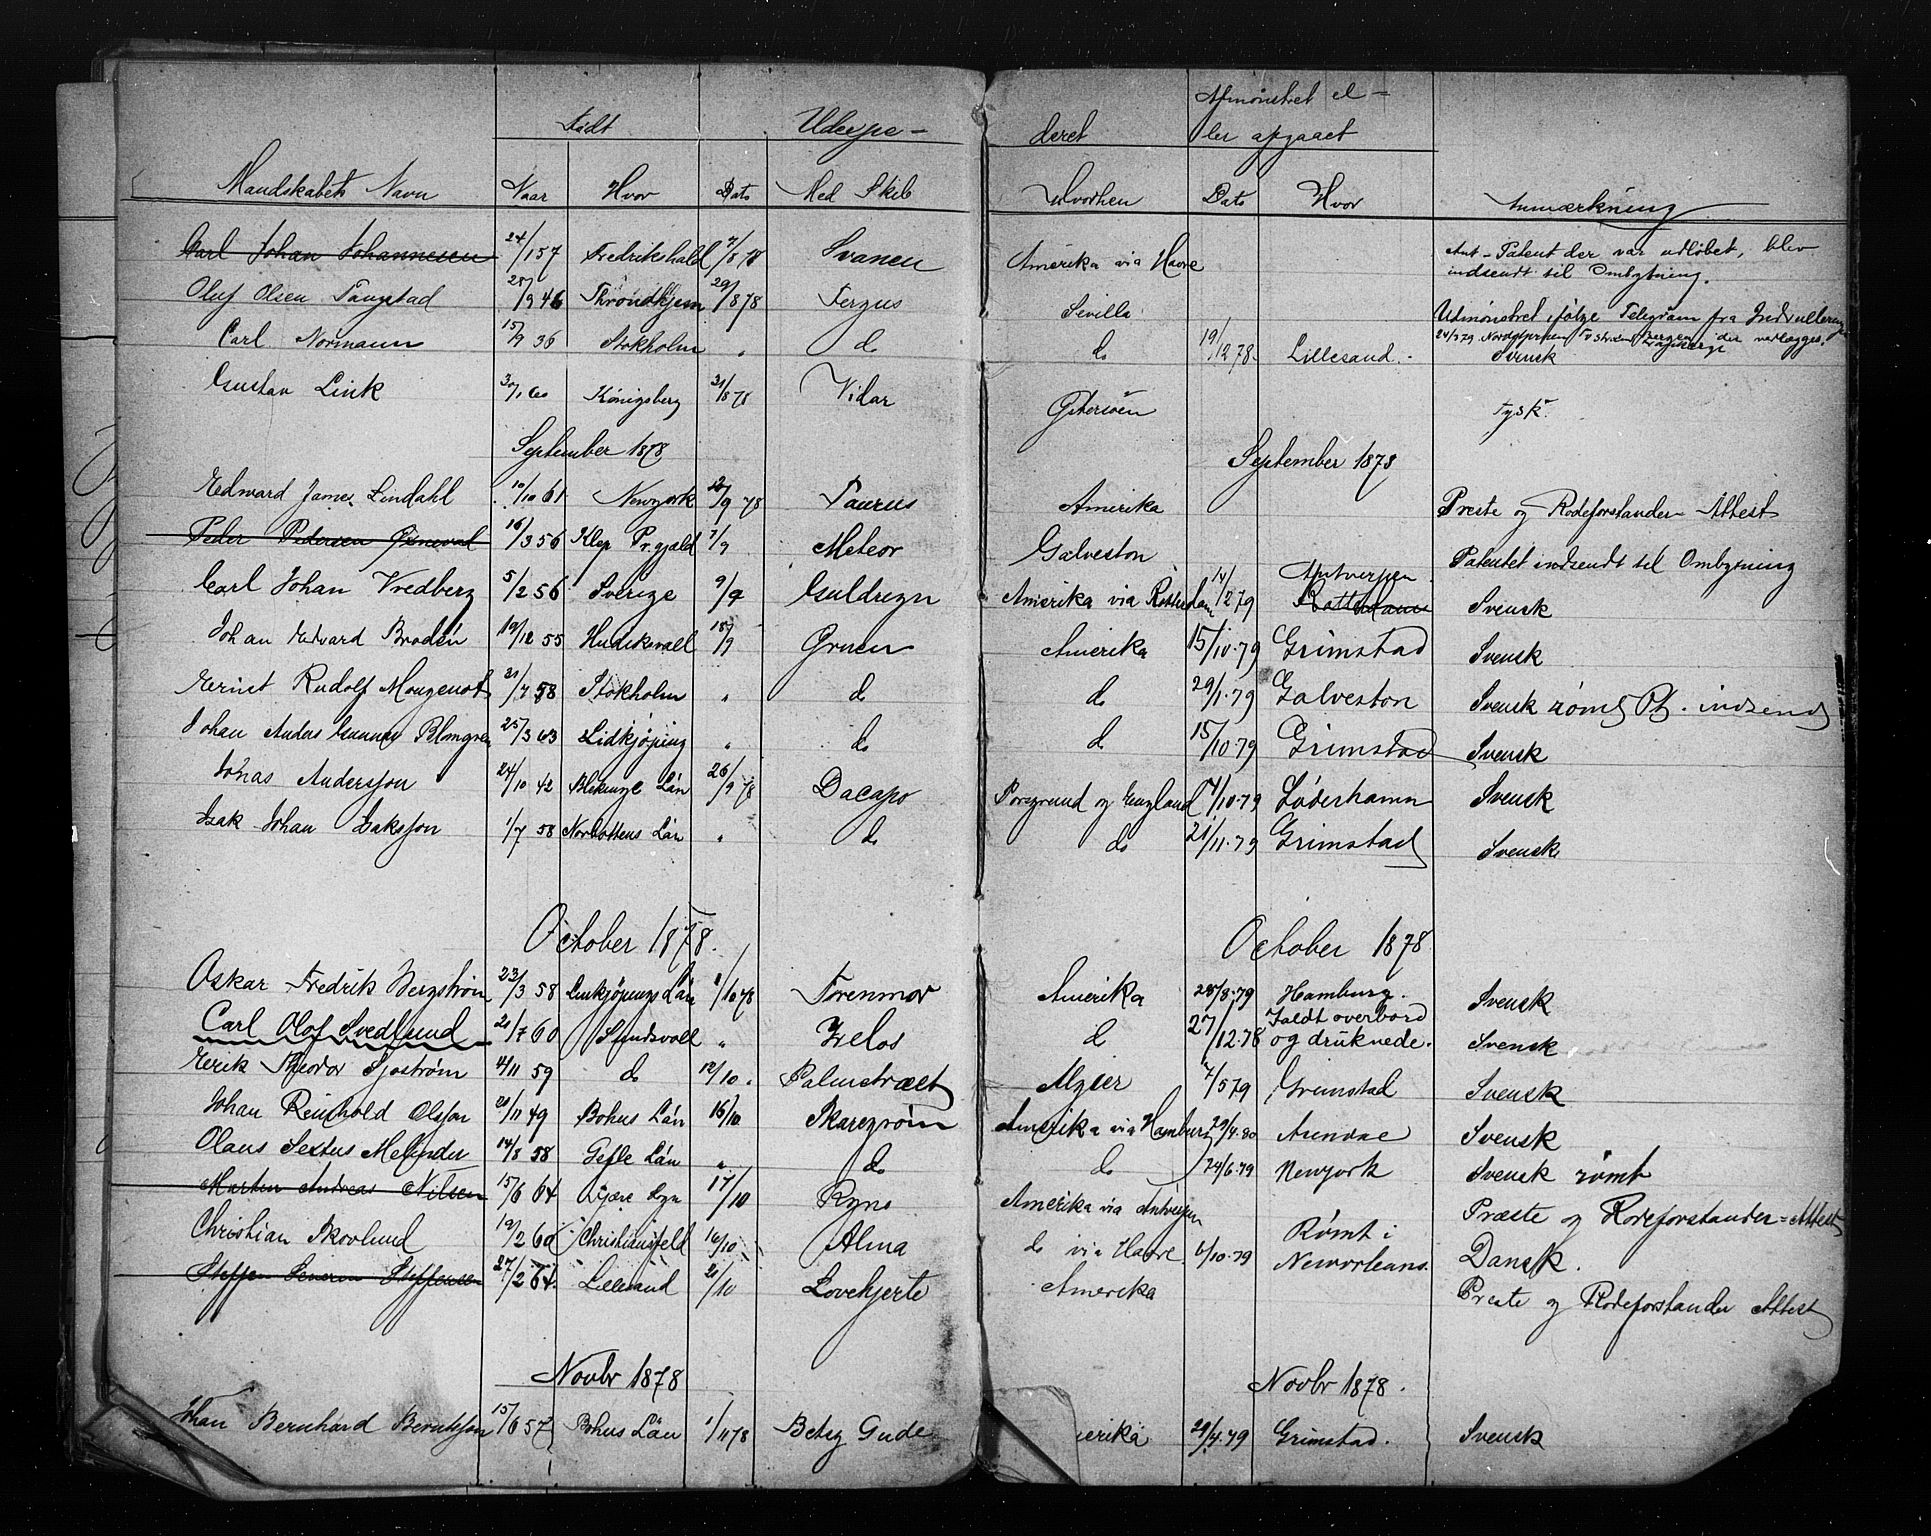 Født Udexpe- deret Afmønstret el-
ler afgaaet
Mandskabets Navn Naar Hvor Dato Med Skib Hvorhen Dato Hvor Anmærkning
Carl Johan Johannesen 24/1 57 Fredrikshald 7/8 78 Svanen Amerika via Havre Ant-Patent der var udløbet, blev
indsendt til Ombytning.
Oluf Olsen Tangstad 28/9 46 Throndhjem 29/8 78 Fergus Sevilla Udmønstret ifølge Telegram fra
Carl Normann 15/9 36 Stokholm " do do 19/12 78. Lillesand. Svensk
Gustav Link 30/1 60 Königsberg 31/8 78 Vidar Østersöen Tysk.
September 1878 September 1878
Edward James Lindahl 10/10 61 Newyork 9 78 Taurus Amerika Preste og Rodeforstander-Attest
Peder Pedersen 16/3 56 Klep Pr.gjæld 7/9 Meteor Galveston Patentet indsendt til Ombytning
Carl Johan Vredberg 5/2 56 Sverige 9/9 Guldregn Amerika via Rotterdam 14/2 79 Antverpen Rotterdam Svensk
Johan Edvard Brodén 19/12 55 Hudiksvall 18/9 Gruen Amerika 15/10.79 Grimstad Svensk
Ernst Rudolf Mougenot 31/7 58 Stokholm " do do 29/1.79 Galveston Svensk rømt Pt. indsendt
Johan Anders Gunnar Blomgren 25/3 63 Lidkjøping " do do 15/10.79 Grimstad Svensk
Johas Andersson 24/10 42 Blekinge Län 26/9 78 Dacapo Porsgrund og England 7/10.79 Søderhamn Svensk
Isak Johan Isaksson 1/7 58 Norbottens Län " do do 21/11.79 Grimstad Svensk
October 1878. October 1878
Oskar Fredrik Bergstrøm 23/3 58 Linkjøpings Län 1/10 78 Torenmor Amerika 28/8.79 Hamburg. Svensk
Carl Olof Svedlund 21/7 60 Sundsvall " Zelos do 27/12.78 Faldt overbord
og druknede. Svensk
Erik Theodor Sjøstrøm 4/11 59 do 12/10. Palmetræet Algier 7/5 79 Grimstad Svensk
Johan Reinhold Olsson 20/11 49 Bohus Län 16/10 Skaregrøm Amerika via Hamburg 29/4.80 Arendal Svensk
Olaus Sextus Melender 14/8 58 Gefle Län " do do 24/6.79 Newyork Svensk rømt
Marten Andreas Nilsen 15/6 64 Fjære Sogn 17/10 Rgno Amerika via Antverpen Præste og Rodeforstander=Attest
Christian Skovlund 19/2 60 Christiansfeld 16/10 Alma do via Havre 6/10.79 Rømt i
Neworleans. Dansk.
Steffen Severin Steffensen 27/2 64. Lillesand 21/10 Løvehjerte Amerika Preste og Rodeforstander Attest
Novbr 1878 Novbr 1878.
Johan Bernhard Berntsson 15/6 57 Bohus Län 1/11 78 Betsy Gude erika 29/4.79 Grimstad. Svensk